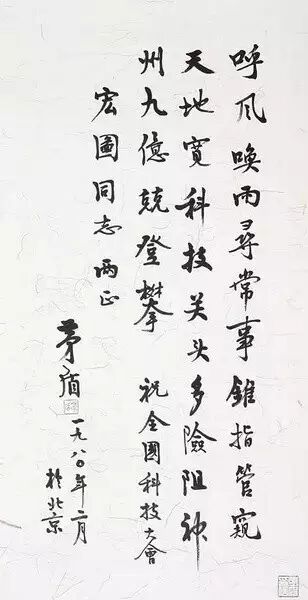 呼风唤雨寻常事锥指管窥
天地宽科技关头多险阻神
州九億兢登攀 祝全国科技大會
宏圖同志两正
茅盾一九八〇年二月
於北京